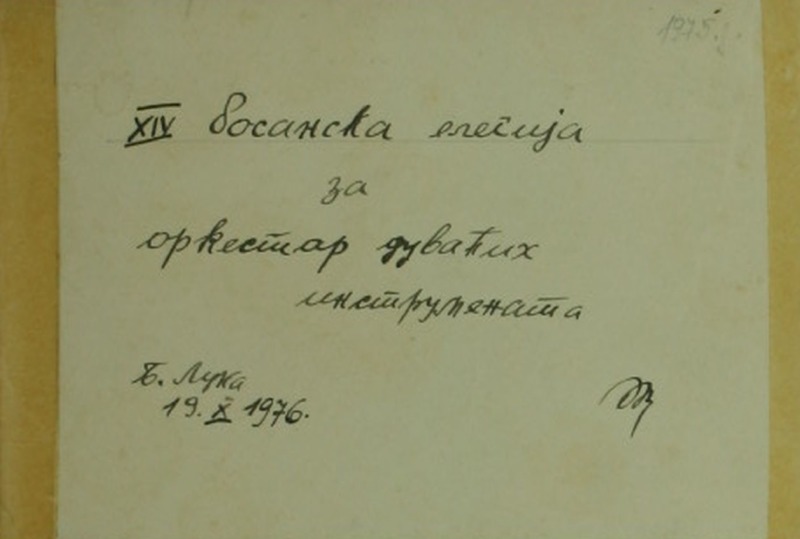 1975.г.
XIV босанска елегија
за
оркестар дувачких
инструмената
Б. Лука
19. X 1976.